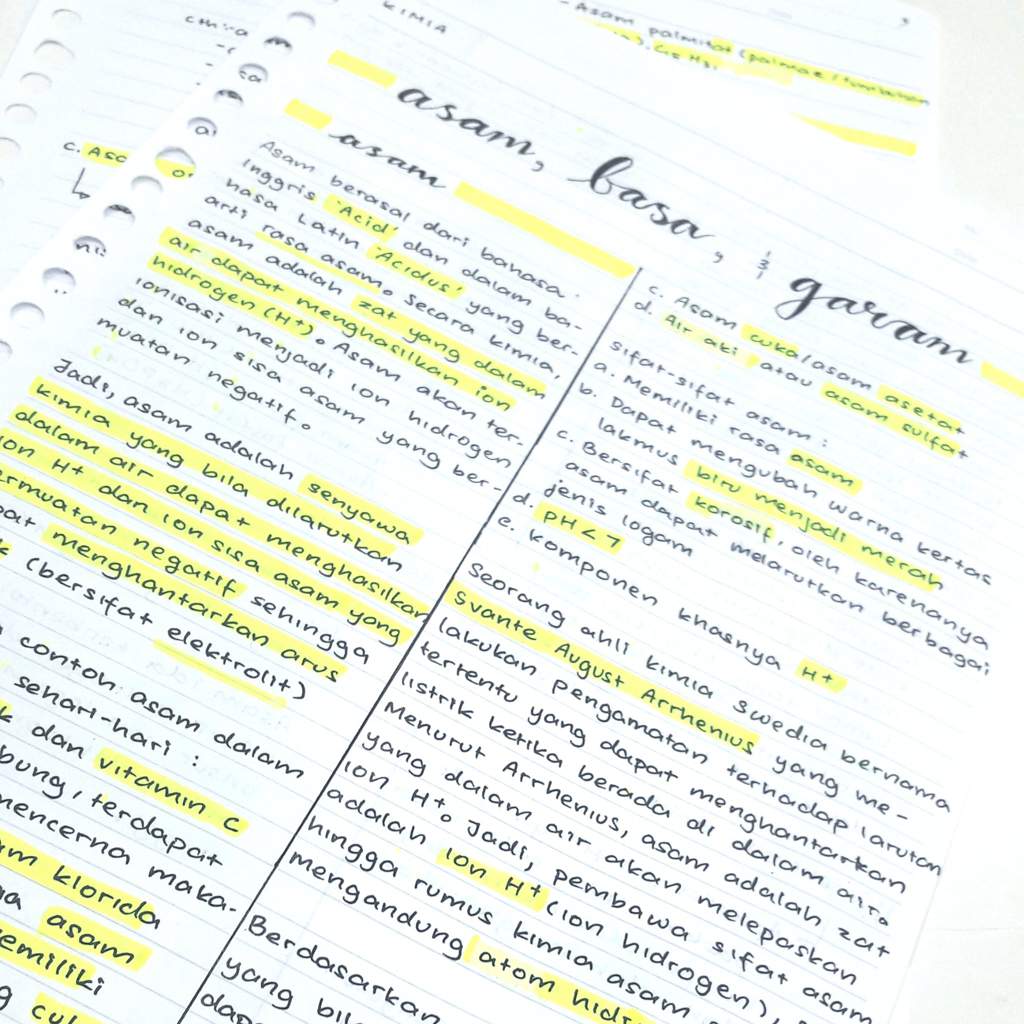 KIMIA
- Asam palmitat (palmae/tumbuhan
c. Asc
asam, basa, & garam
asam
Asam berasal dari bahasa
Inggris 'Acid' dan dalam ba-
hasa Latin 'Acidus' yang ber-
arti rasa asam. Secara kimia,
asam adalah zat yang dalam
air dapat menghasilkan ion
hidrogen (H+). Asam akan ter-
ionisasi menjadi ion hidrogen
dan ion sisa asam yang ber-
muatan negatif.
Jadi, asam adalah senyawa
kimia yang bila dilarutkan
dalam air dapat menghasilkan
ion H+ dan ion sisa asam yang
ermuatan negatif sehingga
pat menghantarkan arus
k (bersifat elektrolit)
contoh asam dalam
sehari-hari :
k dan vitamin C
bung, terdapat
mencerna maka-
am klorida
ga asam
emiliki
g cu
c. Asam cuka/asam asetat
d. Air aki atau asam sulfat
Sifat-sifat asam :
a. Memiliki rasa asam
b. Dapat mengubah warna kertas
lakmus biru menjadi merah
c. Bersifat korosif, oleh karenanya
asam dapat melarutkan berbagai
jenis logam
d. PH < 7
e. komponen khasnya H+
Seorang ahli kimia Swedia bernama
Svante August Arrhenius yang me-
lakukan pengamatan terhadap larutan
tertentu yang dapat menghantarkan
listrik ketika berada di dalam air.
Menurut Arrhenius, asam adalah zat
yang dalam air akan melepaskan
ion H+. Jadi, pembawa sifat asam
adalah ion H+ (ion hidrogen),
hingga rumus kimia asam
mengandung atom hidr
Berdasarkan
yang bil
dap